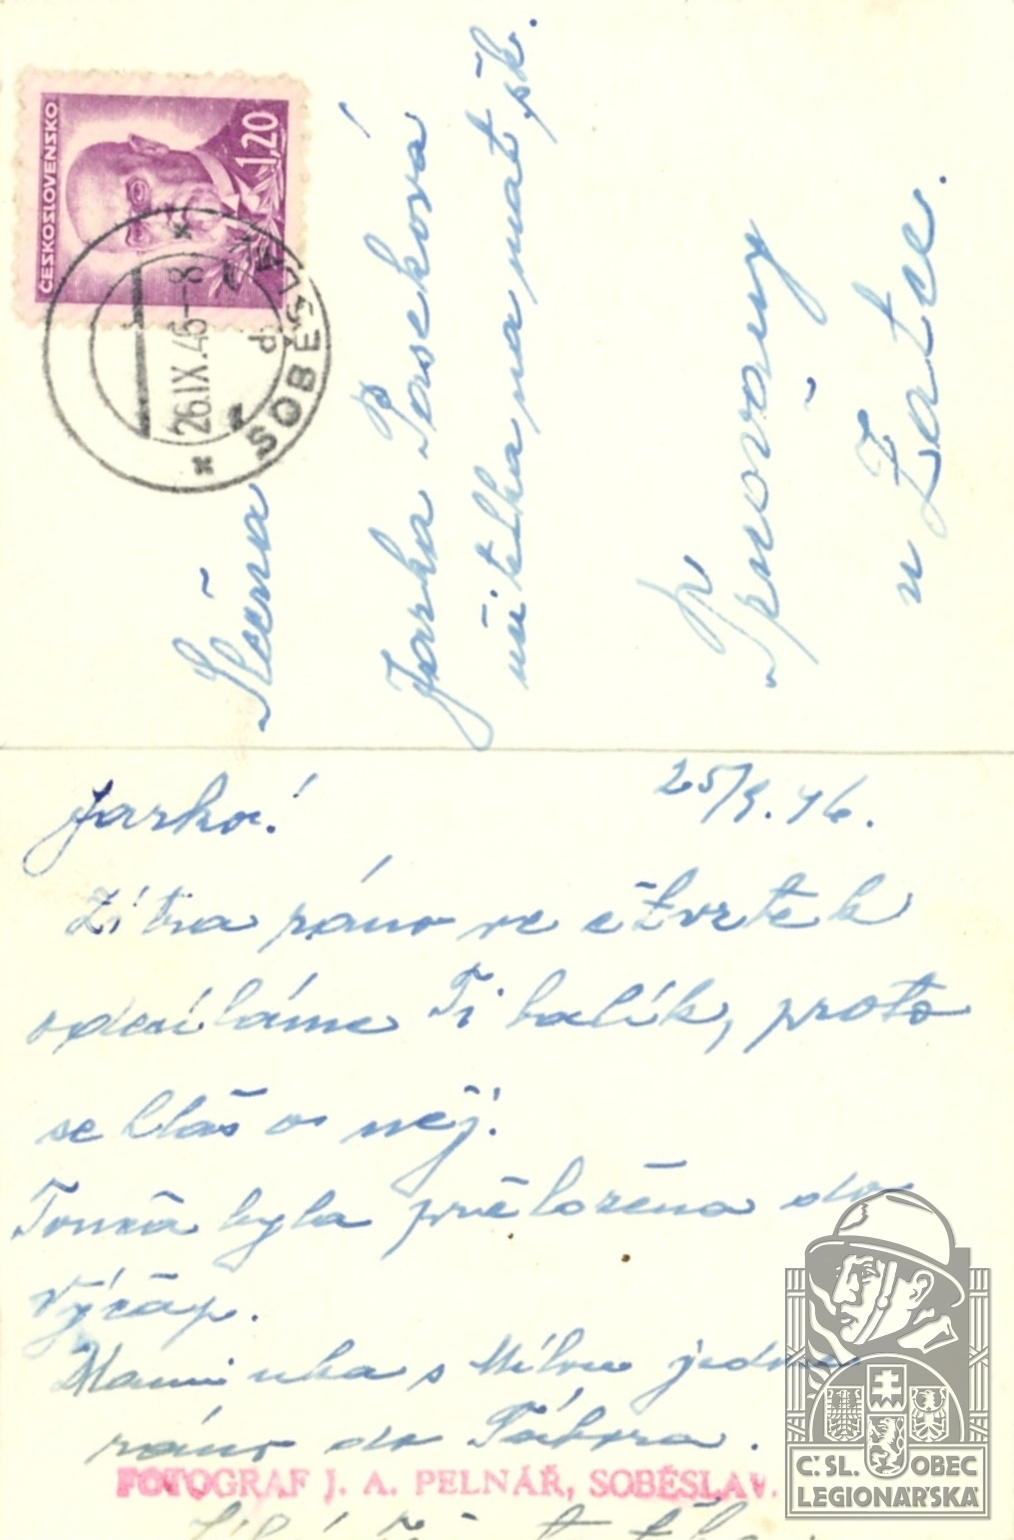 ČESKOSLOVENSKO
1,20
SOBĚSLAV
26.IX.46-8
d
Slečna
Jarka Pasekova
učitelka na mat šk.
Tpnovany
u Žatce.
Jarko! 25/9. 46.
Zítra ráno ve čtvrtek
odesíláme Ti balík, proto
se hlaš o něj.
Tonča byla přeložena do
Výčap.
Maminka s Mílou jedou
ráno do Tábora.
FOTOGRAF J. A. PELNÁŘ, SOBĚSLAV.
Č.SL. OBEC
LEGIONÁŘSKÁ